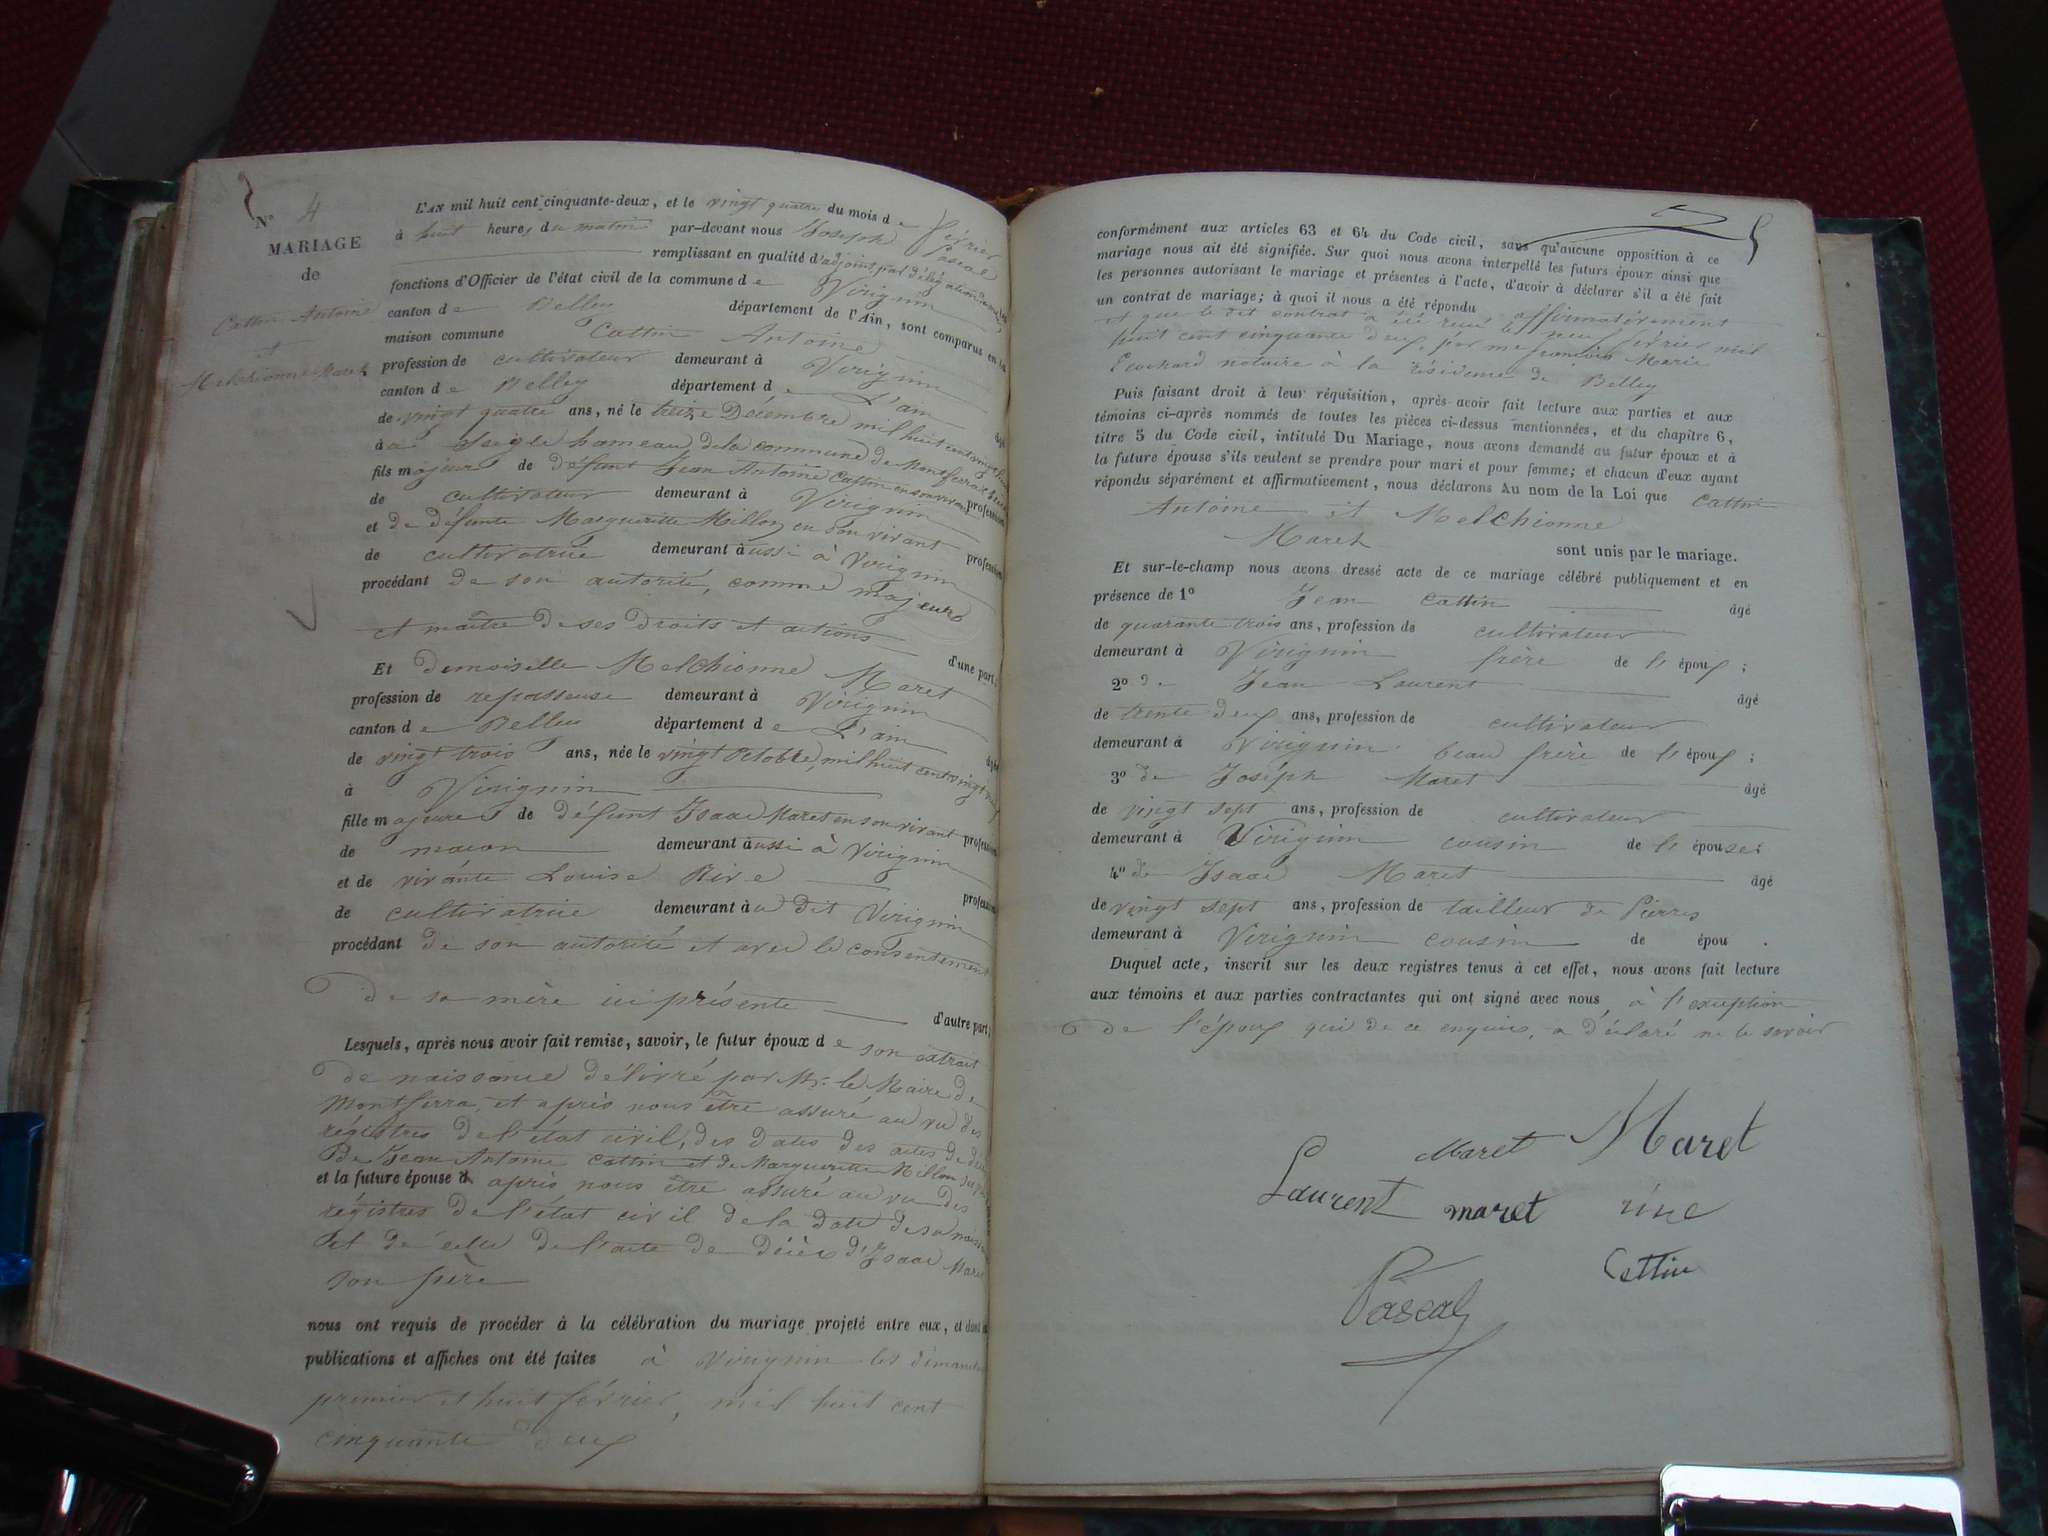 N° 4
MARIAGE
de
Cattin Antoine
et
Melchionne Maret
L'AN mil huit cent cinquante-deux, et le vingt quatre du mois de février
à huit heures du matin par-devant nous Joseph Pascal
remplissant en qualité d'adjoint, par délégation du maire, les
fonctions d'Officier de l'état civil de la commune de Virignin
canton de Belley département de l'Ain, sont comparus en la
maison commune Cattin Antoine
profession de cultivateur demeurant à Virignin
canton de Belley département de L'ain âgé
de vingt quatre ans, né le treize Décembre mil huit cent vingt
à hameau de la commune de Montferra
fils majeur de défunt Jean Antoine Cattin en son vivant profession
de cultivateur demeurant à Virignin
et de défunte Marguerite Millon en son vivant profession
de cultivatrice demeurant aussi à Virignin
procédant de son autorité, comme majeur
et maître de ses droits et actions d'une part;
Et demoiselle Melchionne Maret
profession de repasseuse demeurant à Virignin
canton de Belley département de L'ain âgée
de vingt trois ans, née le vingt octobre, mil huit cent vingt huit
à Virignin
fille majeure de défunt Isaac Maret en son vivant profession
de maçon demeurant aussi à Virignin
et de vivante Louise Rive profession
de cultivatrice demeurant au dit Virignin
procédant de son autorité et avec le consentement
de sa mère ici présente d'autre part;
Lesquels, après nous avoir fait remise, savoir, le futur époux de son extrait
de naissance délivré par Mr. le Maire de
Montferra, et après nous être assuré au vu des
régistres de l'état civil, des dates des actes de décès
de Jean Antoine Cattin et de Marguerite Millon
et la future épouse d après nous être assuré au vu des
régistres de l'état civil de la date de sa naissance
et de celle de l'acte de décès d'Isaac Maret
son père
nous ont requis de procéder à la célébration du mariage projeté entre eux, et dont les
publications et affiches ont été faites à Virignin les dimanches
premier et huit février, mil huit cent
cinquante deux
5
conformément aux articles 63 et 64 du Code civil, sans qu'aucune opposition à ce
mariage nous ait été signifiée. Sur quoi nous avons interpellé les futurs époux ainsi que
les personnes autorisant le mariage et présentes à l'acte, d'avoir à déclarer s'il a été fait
un contrat de mariage; à quoi il nous a été répondu affirmativement
et que le dit contrat a été reçu le neuf février mil
huit cent cinquante deux, par me françois Marie
notaire à la résidence de Belley
Puis faisant droit à leur réquisition, après avoir fait lecture aux parties et aux
témoins ci-après nommés de toutes les pièces ci-dessus mentionnées, et du chapitre 6,
titre 5 du Code civil, intitulé Du Mariage, nous avons demandé au futur époux et à
la future épouse s'ils veulent se prendre pour mari et pour femme; et chacun d'eux ayant
répondu séparément et affirmativement, nous déclarons Au nom de la Loi que Cattin
Antoine et Melchionne
Maret sont unis par le mariage.
Et sur-le-champ nous avons dressé acte de ce mariage célébré publiquement et en
présence de 1° Jean Cattin âgé
de quarante trois ans, profession de cultivateur
demeurant à Virignin frère de l'époux;
2° de Jean Laurent âgé
de trente deux ans, profession de cultivateur
demeurant à Virignin beau frère de l'époux;
3° de Joseph Maret âgé
de vingt sept ans, profession de cultivateur
demeurant à Virignin cousin de l'épouse;
4° de Isaac Maret âgé
de vingt sept ans, profession de tailleur de Pierres
demeurant à Virignin cousin de épou .
Duquel acte, inscrit sur les deux registres tenus à cet effet, nous avons fait lecture
aux témoins et aux parties contractantes qui ont signé avec nous à l'exception
de l'époux qui de ce enquis, a déclaré ne le savoir
Maret Maret
Laurent maret rive
Cattin
Pascal